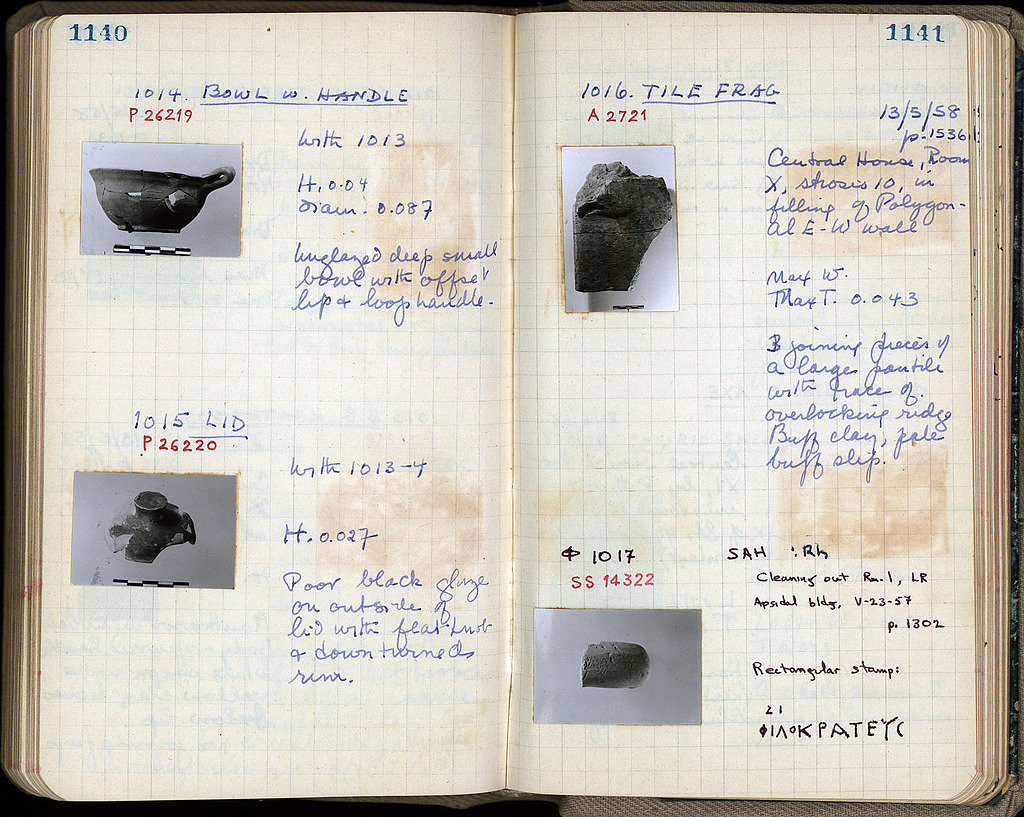 1140
1014. BOWL W. HANDLE
P 26219
With 1013
H. 0.04
Diam. 0.087
Unglazed deep small
bowl with offset
lip & loop handle.
1015 LID
P 26220
With 1013-4
H. 0.027
Poor black glaze
on outside of
lid with flat knob
& down turned
rim.
1141
1016. TILE FRAG
A 2721
13/5/58
p. 1536
Central House, Room
X, strosis 10, in
filling of Polygon-
al E-W wall
Max W.
Max T. 0.043
3 joining pieces of
a large pantile
with trace of
overlocking ridge
Buff clay, pale
buff slip.
Φ 1017
SS 14322
SAH : Rh
Cleaning out Rm. 1, LR
Apsidal bldg, V-23-57
p. 1302
Rectangular stamp:
ΦΙΛΟΚΡΑΤΕΥC